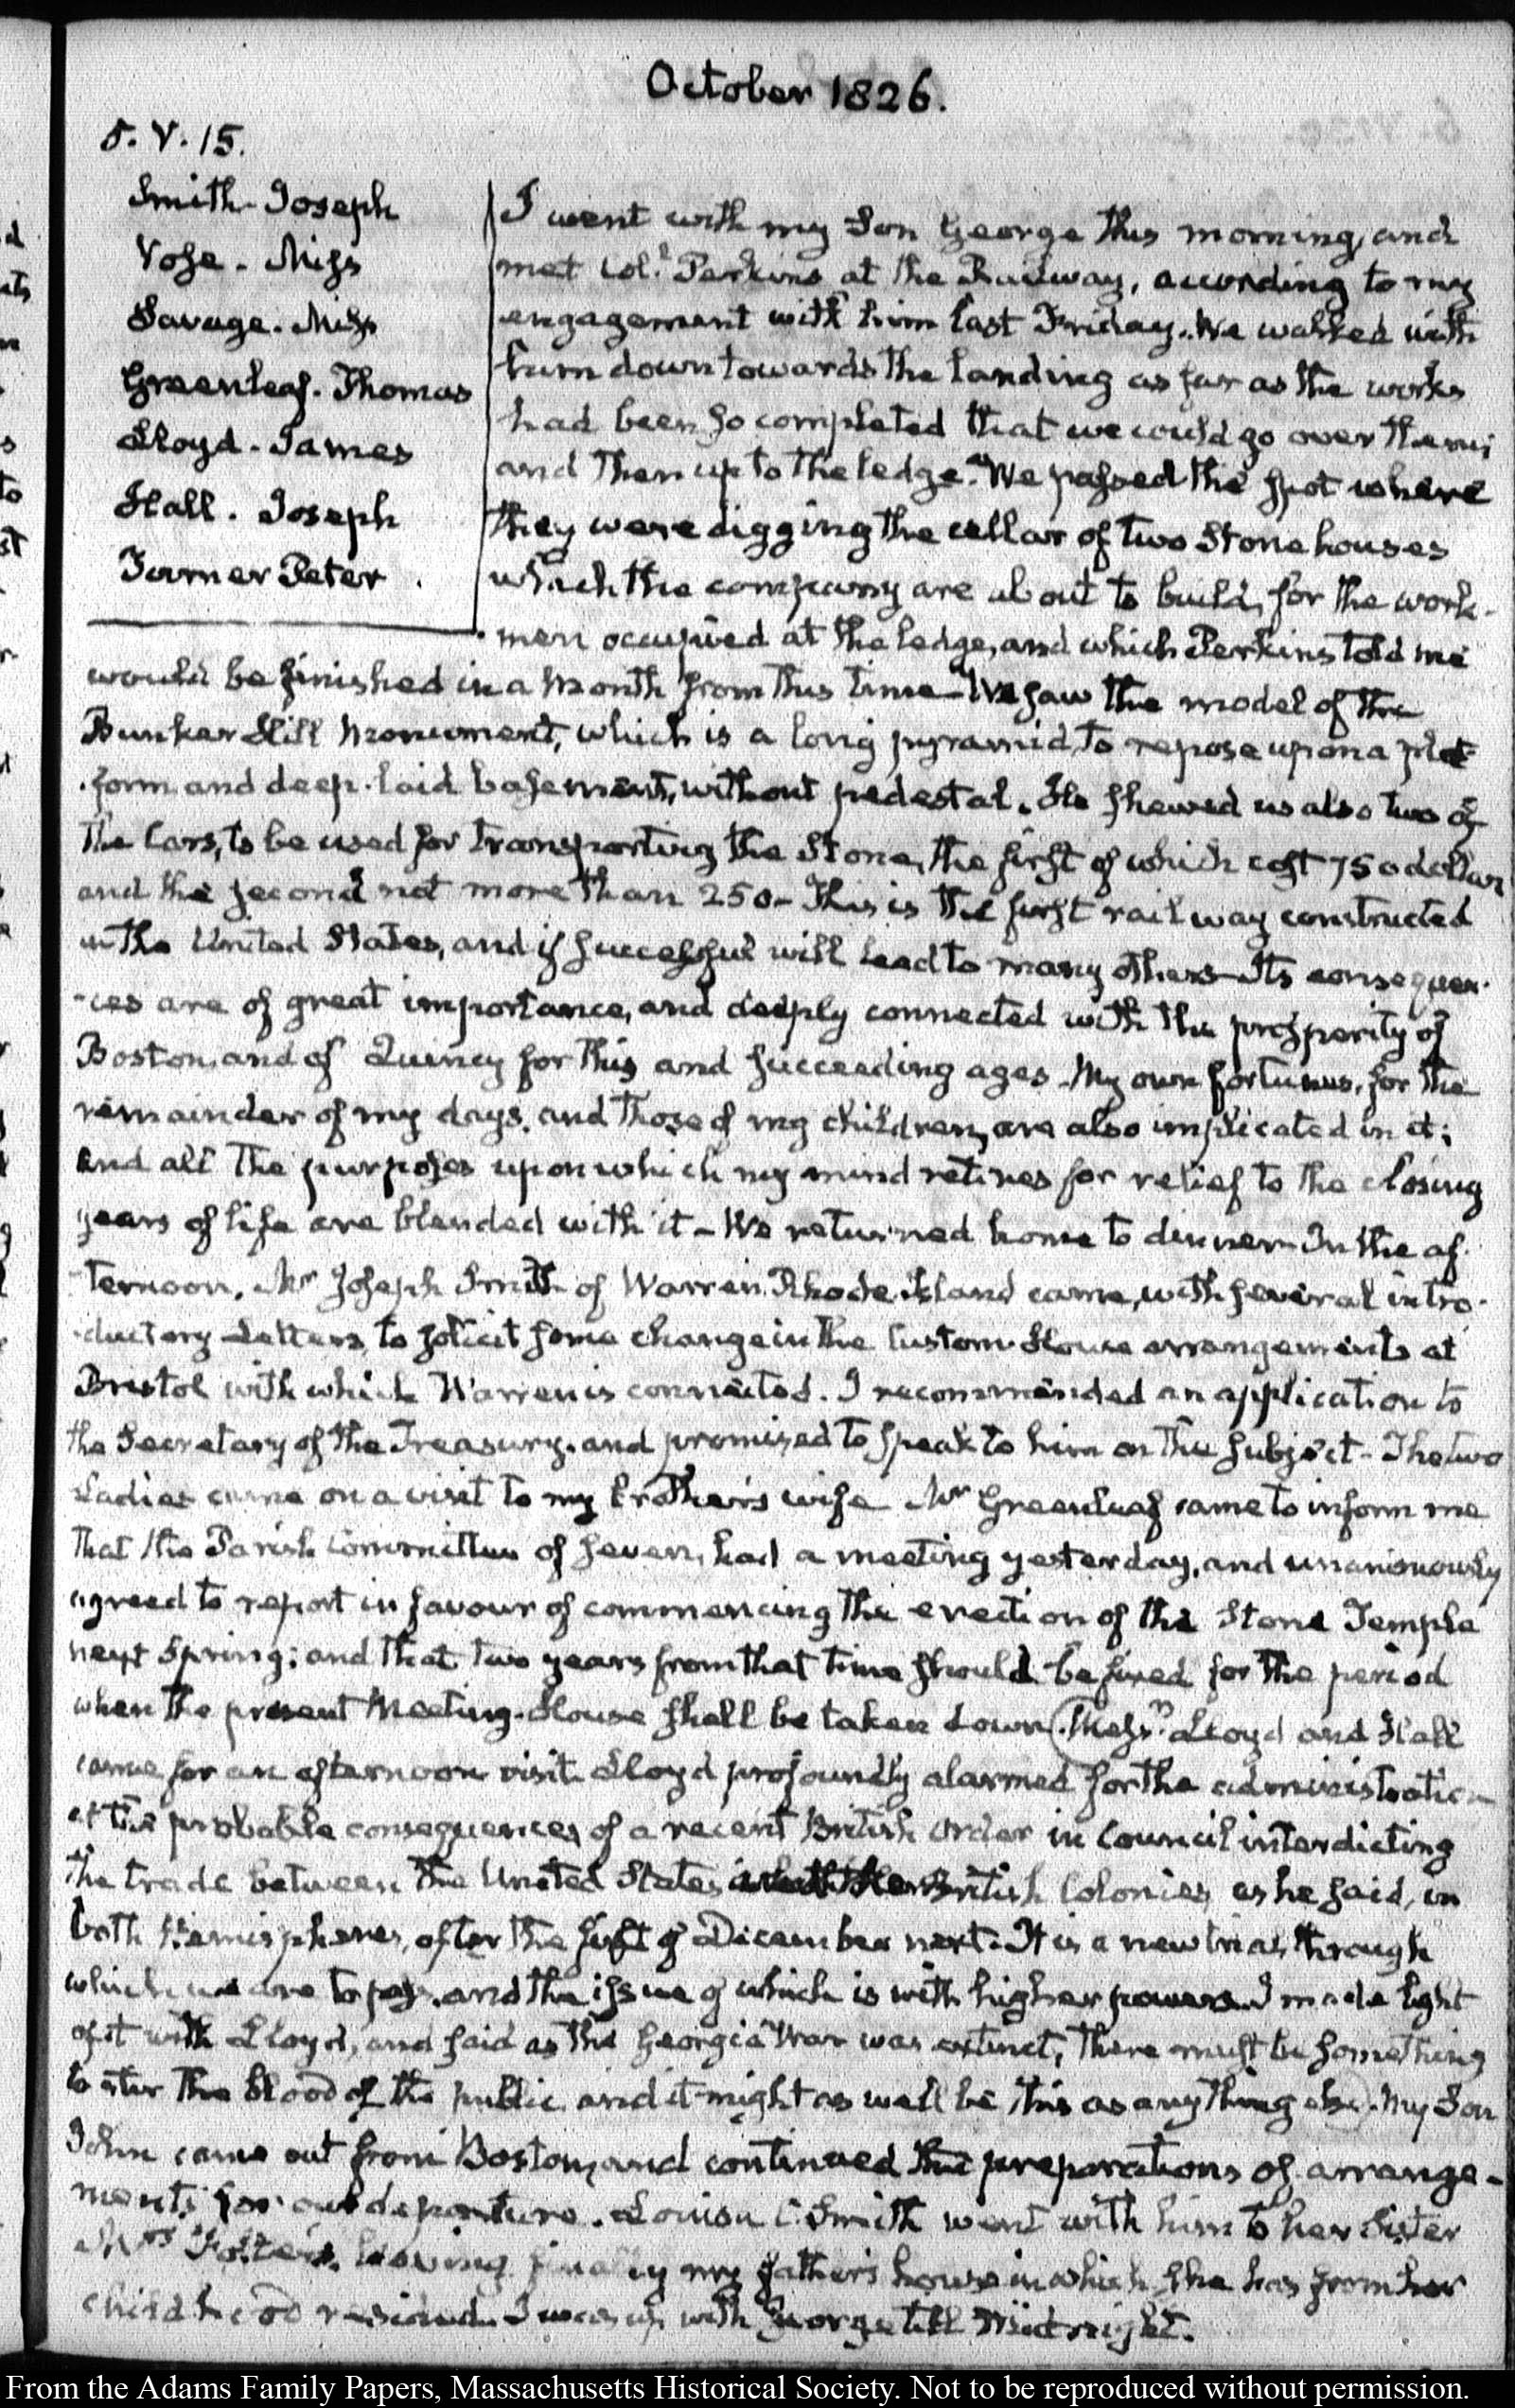 October 1826.
5. V. 15.
Smith. Joseph
Vose. Miss
Savage. Miss
Greenleaf. Thomas
Lloyd. James
Hall. Joseph
Turner Peter.
I went with my Son George this morning, and
met Col.l Perkins at the Railway, according to my
engagement with him last Friday. We walked with
him down towards the landing as far as the works
had been so completed that we could go over them;
and then up to the ledge. We passed the spot where
they were digging the cellar of two Stone houses
which the company are about to build, for the work-
men occupied at the ledge, and which Perkins told me
would be finished in a Month from this time— We saw the model of the
Bunker Hill Monument, which is a long pyramid, to repose upon a plat-
form and deep-laid basement, without pedestal. He shewed us also two of
the Cars, to be used for transporting the Stone, the first of which cost 750 dollars
and the second not more than 250— This is the first rail way constructed
in the United States, and if successful will lead to many others— Its consequen-
ces are of great importance, and deeply connected with the prosperity of
Boston, and of Quincy for this and succeeding ages— My own fortunes, for the
remainder of my days, and those of my children, are also implicated in it;
and all the purposes upon which my mind retires for relief to the closing
years of life are blended with it— We returned home to dinner— In the af-
ternoon, Mr Joseph Smith of Warren, Rhode-Island came, with several intro-
ductory Letters, to solicit some change in the Custom-House arrangements at
Bristol with which Warren is connected. I recommended an application to
the Secretary of the Treasury, and promised to speak to him on the subject— The two
Ladies came on a visit to my brother's wife Mr Greenleaf came to inform me
that the Parish Committee of seven, had a meeting yesterday, and unanimously
agreed to report in favour of commencing the erection of the Stone Temple
next Spring; and that two years from that time should be fixed for the period
when the present Meeting-House shall be taken down. Messrs Lloyd and Hall
came for an afternoon visit. Lloyd profoundly alarmed for the administration
at the probable consequences of a recent British Order in Council interdicting
the trade between the United States British Colonies, as he said, in
both Hemispheres, after the first of December next. It is a new trial through
which we are to pass, and the issue of which is with higher powers. I made light
of it with Lloyd, and said as the Georgia War was extinct, there must be something
to stir the blood of the public, and it might as well be this as any thing else. My Son
John came out from Boston, and continued the preparations of arrange-
ments for our departure. Louisa C. Smith went with him to her Sister
Mrs Foster's, leaving finally my father's house in which she has from her
childhood resided. I was up with George till Midnight.
From the Adams Family Papers, Massachusetts Historical Society. Not to be reproduced without permission.